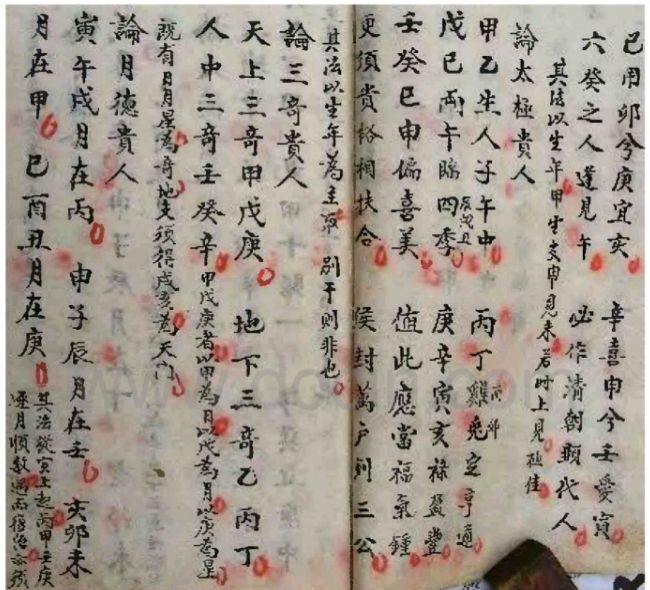 己用卯兮庚宜亥 辛喜申兮壬愛寅
六癸之人逢見午 必作清朝顯代人
其法以生年甲生支申見未若时上見極佳
論太極貴人
甲乙生人子午中 丙丁雞兔定亨通
酉卯
戊己兩午臨四季 庚辛寅亥祿盈豐
辰戌丑
壬癸巳申偏喜美 值此應當福氣鍾
更須貴格相扶合 侯封萬户列三公
其法以生年為主 別于則非也
論三奇貴人
天上三奇甲戊庚 地下三奇乙丙丁
人中三奇壬癸辛 甲戊庚者以甲為日以戊為月以庚為星
既有日月星為奇地支須得戌亥為天門
論月德貴人
寅午戌月在丙 申子辰月在壬 亥卯未
月在甲 巳酉丑月在庚 其法從寅上起丙甲壬庚
逐月順数遇而復始